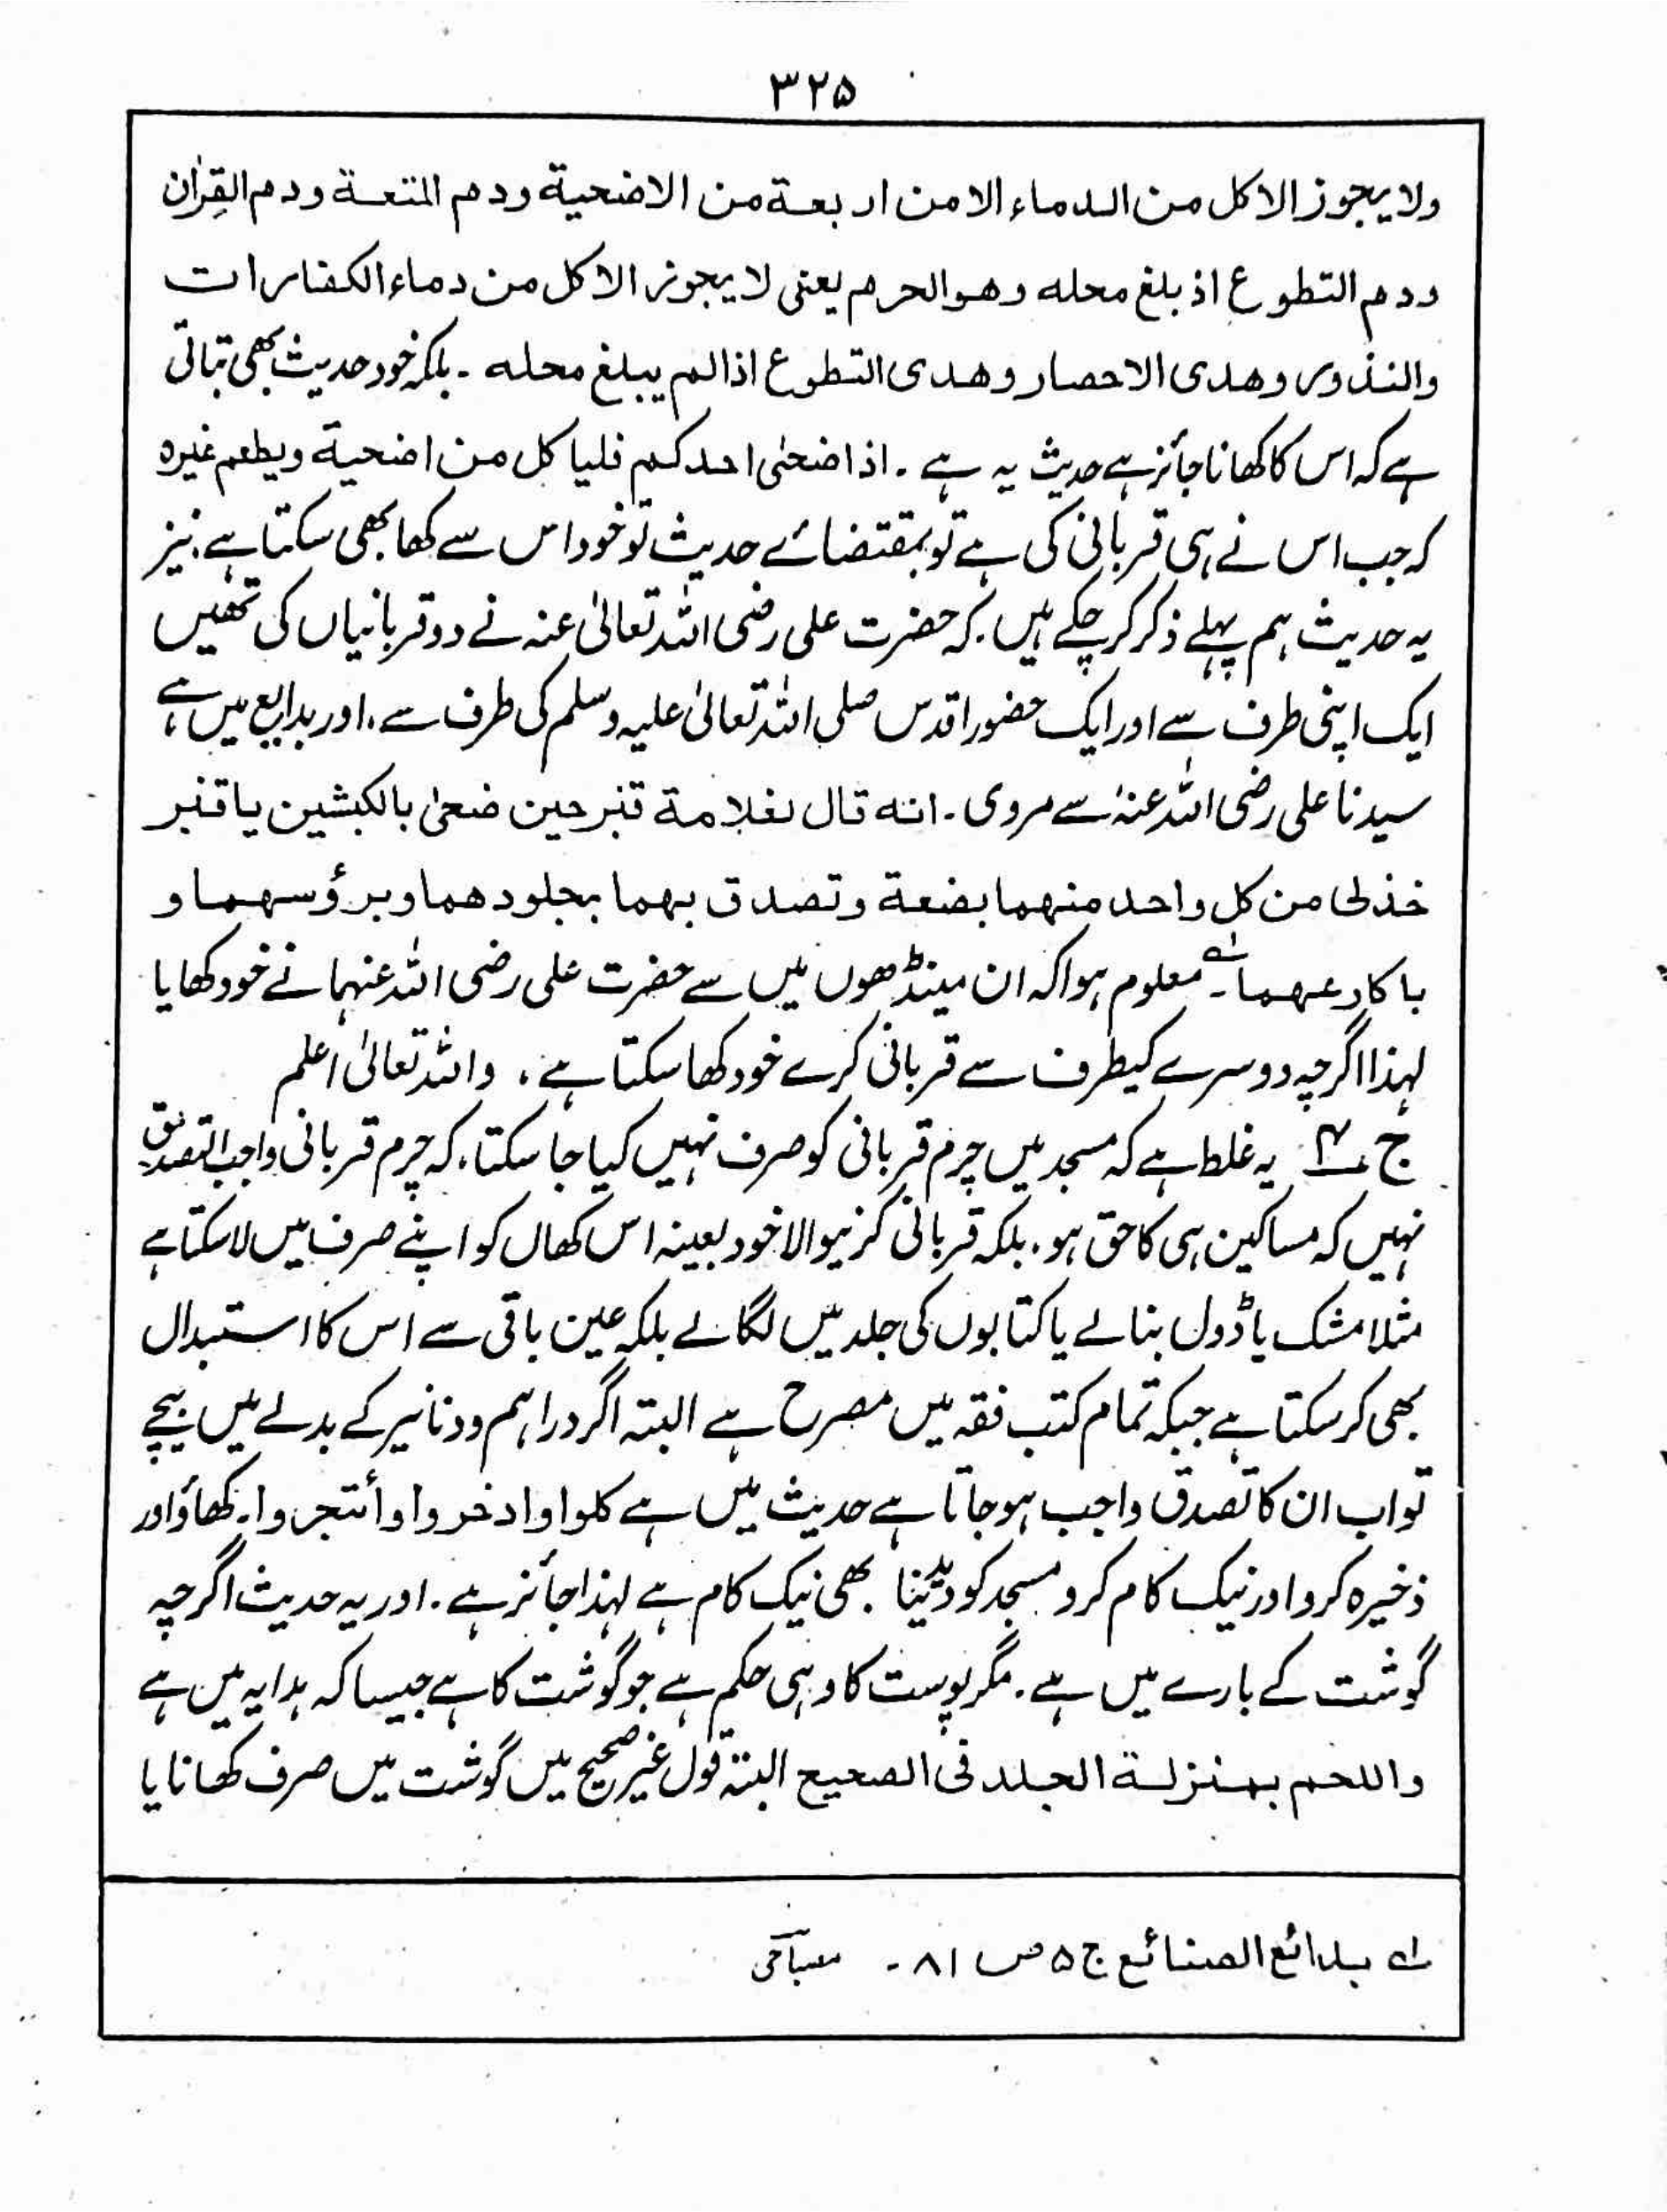 ۳۲۵
ولا یجوز الاکل من الدماء الا من اربعة من الاضحیة ودم المتعة ودم القِران
ودم التطوع اذ بلغ محله وهو الحرم یعنی لا یجوز الاکل من دماء الکفارات
والنذور وهدی الاحصار وهدی التطوع اذا لم یبلغ محله ۔ بلکہ خود حدیث بھی بتاتی
ہے کہ اس کا کھانا جائز ہے حدیث یہ ہے ۔ اذا ضحیٰ احدکم فلیاکل من اضحیة ویطعم غیره
کہ جب اس نے ہی قربانی کی ہے تو بمقتضائے حدیث تو خود اس سے کھا بھی سکتا ہے، نیز
یہ حدیث ہم پہلے ذکر کر چکے ہیں۔ کہ حضرت علی رضی اللہ تعالیٰ عنہ نے دو قربانیاں کی تھیں
ایک اپنی طرف سے اور ایک حضور اقدس صلی اللہ تعالیٰ علیہ وسلم کی طرف سے ۔ اور بدایع میں ہے
سیدنا علی رضی اللہ عنہ سے مروی ۔ انه قال لغلامة قنبر حین ضحیٰ بالکبشین یا قنبر
خذ لی من کل واحد منهما بضعة وتصدق بهما بجلودهما وبرؤسهما و
باکارعهما ۔ لہ معلوم ہوا کہ ان مینڈھوں میں سے حضرت علی رضی اللہ عنہما نے خود کھایا
لہذا اگرچہ دوسرے کیطرف سے قربانی کرے خود کھا سکتا ہے ، واللہ تعالیٰ اعلم
ج ۴ یہ غلط ہے کہ مسجد میں چرم قربانی کو صرف نہیں کیا جا سکتا، کہ چرم قربانی واجب التصدیق
نہیں کہ مساکین ہی کا حق ہو۔ بلکہ قربانی کرنیوالا خود بعینہ اس کھال کو اپنے صرف میں لا سکتا ہے
مثلا مشک یا ڈول بنالے یا کتابوں کی جلد میں لگالے بلکہ عین باقی سے اس کا استبدال
بھی کر سکتا ہے جبکہ تمام کتب فقہ میں مصرح ہے البتہ اگر دراہم ودنانیر کے بدلے میں بیچے
تو اب ان کا تصدق واجب ہو جاتا ہے حدیث میں ہے کلوا وادخروا وأتجروا۔ کھاؤ اور
ذخیرہ کرو اور نیک کام کرو مسجد کو دیدینا بھی نیک کام ہے لہذا جائز ہے ۔ اور یہ حدیث اگرچہ
گوشت کے بارے میں ہے ۔ مگر پوست کا وہی حکم ہے جو گوشت کا ہے جیسا کہ ہدایہ میں ہے
واللحم بمنزلة الجلد فی الصحیح البتہ قول غیر صحیح میں گوشت میں صرف کھانا یا
لہ بدائع الصنائع ج ۵ ص ۸۱ ۔ مصباحی